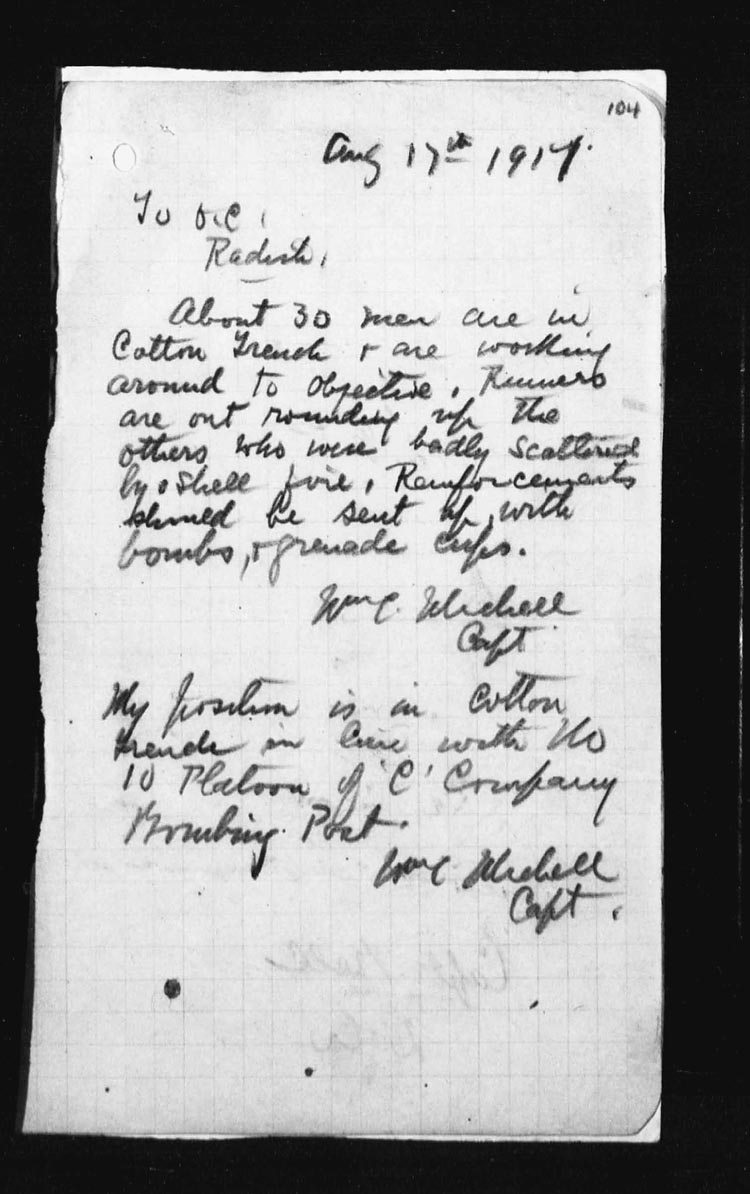 104
Aug 17th 1917.
To O.C.
Radish.
About 30 men are in
Cotton Trench & are working
around to objective. Runners
are out rounding up the
others who were badly scattered
by shell fire. Reinforcements
should be sent up with
bombs, & grenade cups.
Wm C. Michell
Capt
My position is in Cotton
trench in line with No
10 Platoon of 'C' Company
Bombing Post.
Wm C Michell
Capt.